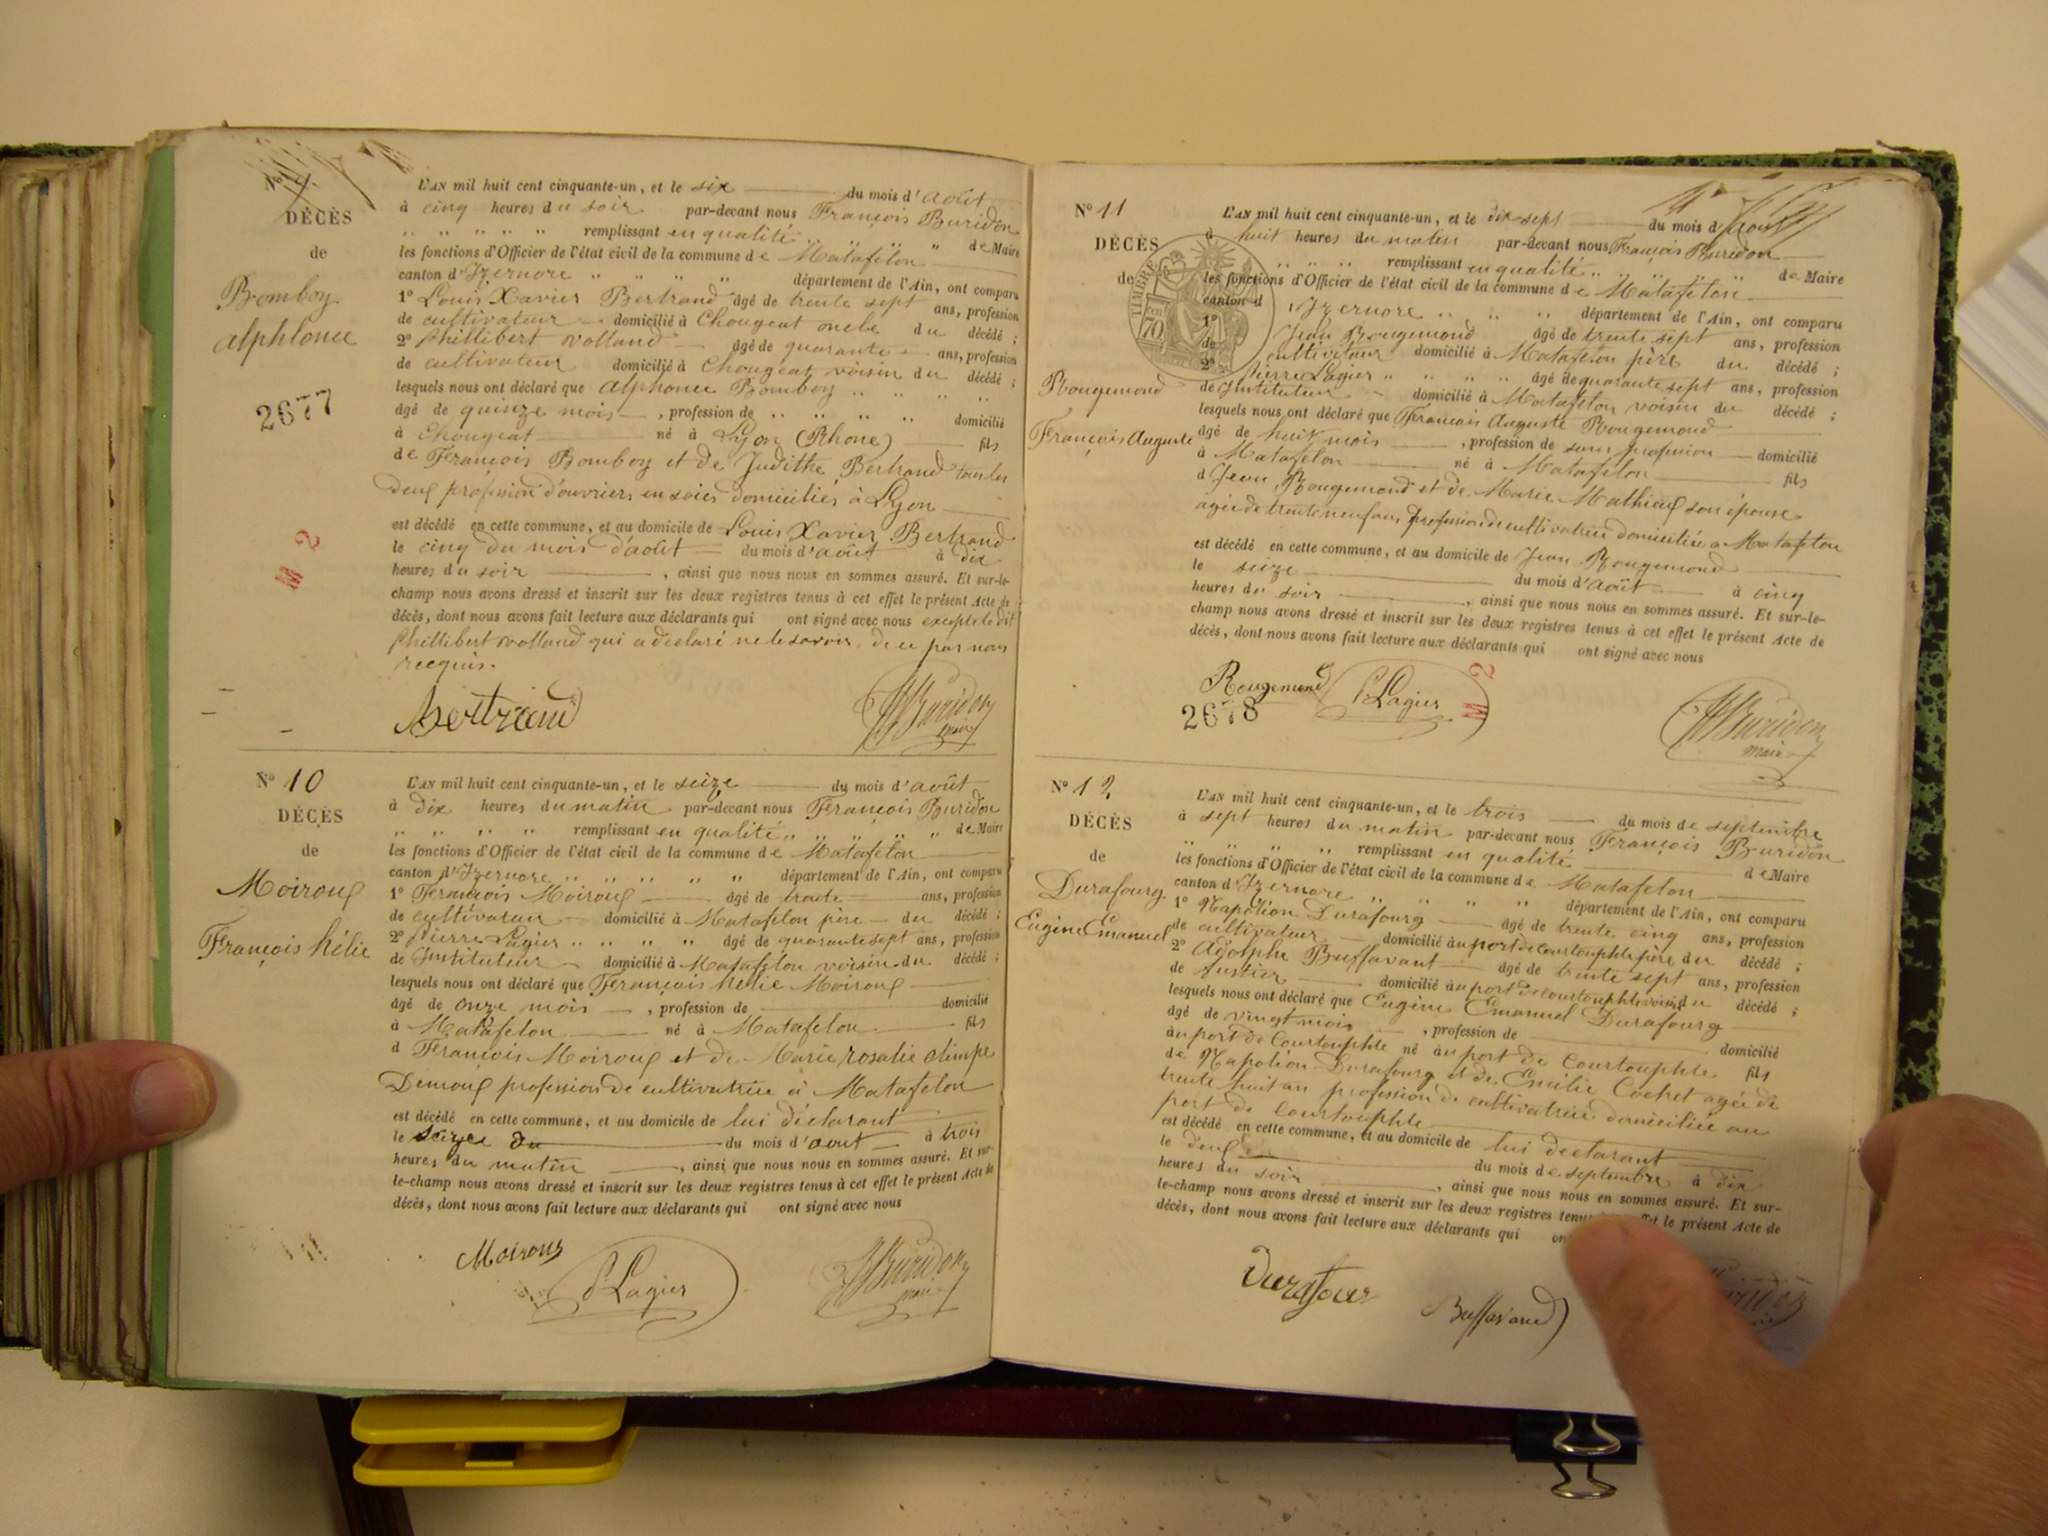 DÉCÈS
de
Bomboy
alphonce
2677
M 2
L'AN mil huit cent cinquante-un, et le six du mois d'août
à cinq heures du soir par-devant nous François Buridon
" " " " " remplissant en qualité " " " " de Maire
les fonctions d'Officier de l'état civil de la commune de Matafelon
canton d'Izernore " " " " département de l'Ain, ont comparu
1° Louis Xavier Bertrand âgé de trente sept ans, profession
de cultivateur domicilié à Chougeat oncle du décédé ;
2° Phillibert Volland âgé de quarante ans, profession
de cultivateur domicilié à Chougeat voisin du décédé ;
lesquels nous ont déclaré que Alphonce Bomboy " " " "
âgé de quinze mois , profession de " " " " domicilié
à Chougeat né à Lyon (Rhone) fils
de François Bomboy et de Judithe Bertrand tous les
deux profession d'ouvriers en soies domiciliés à Lyon
est décédé en cette commune, et au domicile de Louis Xavier Bertrand
le cinq du mois d'août du mois d'août à dix
heures du soir , ainsi que nous nous en sommes assuré. Et sur-le-
champ nous avons dressé et inscrit sur les deux registres tenus à cet effet le présent Acte de
décès, dont nous avons fait lecture aux déclarants qui ont signé avec nous excepté le dit
Phillibert Volland qui a déclaré ne le savoir, de ce par nous
recquis.
Bertrand
Buridon
maire
N° 10
DÉCÈS
de
Moiroux
François hélie
L'AN mil huit cent cinquante-un, et le seize du mois d'août
à dix heures du matin par-devant nous François Buridon
" " " " remplissant en qualité " " " " " de Maire
les fonctions d'Officier de l'état civil de la commune de Matafelon
canton d'Izernore " " " " " département de l'Ain, ont comparu
1° François Moiroux âgé de trente ans, profession
de cultivateur domicilié à Matafelon père du décédé ;
2° Pierre Lagier " " " " âgé de quarante sept ans, profession
de Instituteur domicilié à Matafelon voisin du décédé ;
lesquels nous ont déclaré que François hélie Moiroux
âgé de onze mois , profession de domicilié
à Matafelon né à Matafelon fils
d François Moiroux et de Marie rosalie olimpe
Demoux profession de cultivatrice à Matafelon
est décédé en cette commune, et au domicile de lui déclarant
le seize du du mois d'aout à trois
heures du matin , ainsi que nous nous en sommes assuré. Et sur-
le-champ nous avons dressé et inscrit sur les deux registres tenus à cet effet le présent Acte de
décès, dont nous avons fait lecture aux déclarants qui ont signé avec nous
Moiroux
P Lagier
Buridon
maire
N° 11
DÉCÈS
de
Rougemond
François Auguste
TIMBRE
70
L'AN mil huit cent cinquante-un, et le dix sept du mois d'Août
à huit heures du matin par-devant nous François Buridon
" " " remplissant en qualité " " " " " de Maire
les fonctions d'Officier de l'état civil de la commune de Matafelon
canton d'Izernore " " " département de l'Ain, ont comparu
1° Jean Rougemond âgé de trente sept ans, profession
de cultivateur domicilié à Matafelon père du décédé ;
2° Pierre Lagier " " " " âgé de quarante sept ans, profession
de Instituteur domicilié à Matafelon voisin du décédé ;
lesquels nous ont déclaré que François Auguste Rougemond
âgé de huit mois , profession de sans profession domicilié
à Matafelon né à Matafelon fils
d Jean Rougemond et de Marie Mathieux son épouse
agée de trente neuf ans, profession de cultivatrice domiciliée a Matafelon
est décédé en cette commune, et au domicile de Jean Rougemond
le seize du mois d'août à cinq
heures du soir , ainsi que nous nous en sommes assuré. Et sur-le-
champ nous avons dressé et inscrit sur les deux registres tenus à cet effet le présent Acte de
décès, dont nous avons fait lecture aux déclarants qui ont signé avec nous
Rougemond
P Lagier
M 2
2678
Buridon
maire
N° 12
DÉCÈS
de
Durafourg
Eugène Emanuel
L'AN mil huit cent cinquante-un, et le trois du mois de septembre
à sept heures du matin par-devant nous François Buridon
" " " " remplissant en qualité de Maire
les fonctions d'Officier de l'état civil de la commune de Matafelon
canton d'Izernore " " " " département de l'Ain, ont comparu
1° Napoléon Durafourg âgé de trente cinq ans, profession
de cultivateur domicilié au port de Courtouphle père du décédé ;
2° Adolphe Buffavant âgé de trente sept ans, profession
de domicilié au port de Courtouphle voisin du décédé ;
lesquels nous ont déclaré que Eugène Emanuel Durafourg
âgé de vingt mois , profession de domicilié
au port de Courtouphle né au port de Courtouphle fils
de Napoléon Durafourg et de Emilie Cochet agée de
trente huit an profession de cultivatrice domiciliée au
port de Courtouphle
est décédé en cette commune, et au domicile de lui déclarant
le deux du mois de septembre à dix
heures du soir , ainsi que nous nous en sommes assuré. Et sur-
le-champ nous avons dressé et inscrit sur les deux registres tenus le présent Acte de
décès, dont nous avons fait lecture aux déclarants qui
Durafour
Buffavand